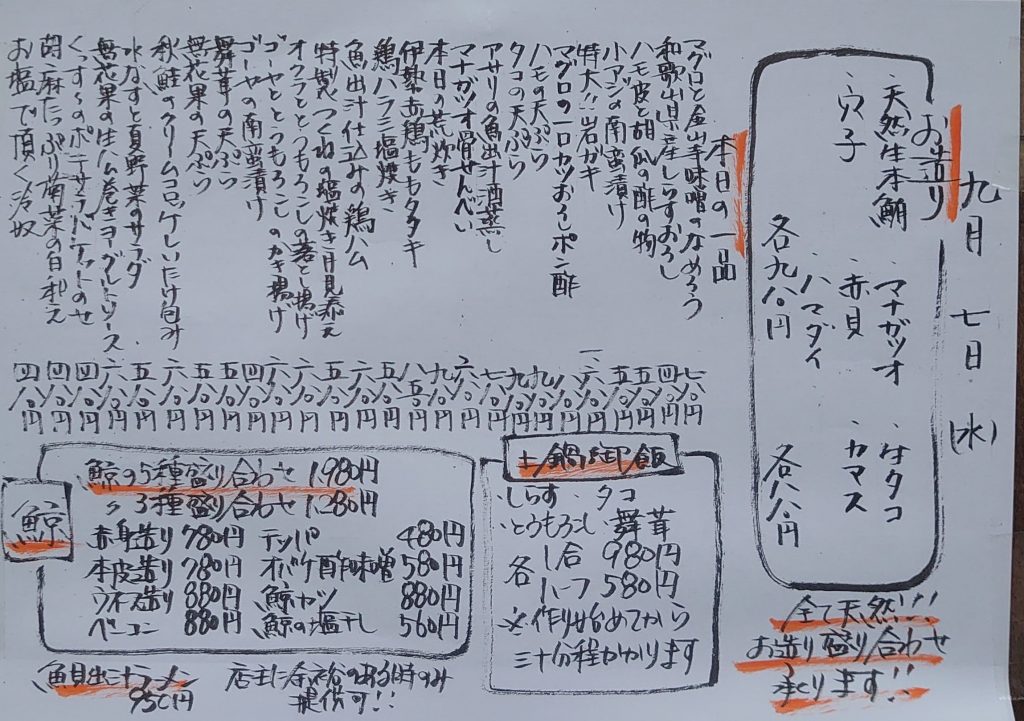 九月 七日 (水)
お造り
・天然生本鮪 ・マナガツオ ・生タコ
・穴子 ・赤貝 ・カマス
・ハマダイ
各九八〇円 各八八〇円
全て天然!!!
お造り盛り合わせ
承ります!!
本日の一品
マグロと金山寺味噌のなめろう 七八〇円
和歌山県産しらすおろし 四八〇円
ハモ皮と胡瓜の酢の物 五八〇円
小アジの南蛮漬け 五八〇円
特大!!岩ガキ
マグロの一口カツおろしポン酢
ハモの天ぷら
タコの天ぷら
アサリの魚出汁酒蒸し
マナガツオ骨せんべい
本日の荒炊き
伊勢赤鶏ももタタキ
鶏ハラミ塩焼き
魚出汁仕込みの鶏ハム
特製つくねの塩焼き月見添え
オクラととうもろこしの落とし揚げ
ゴーヤととうもろこしのかき揚げ
ゴーヤの南蛮漬け
舞茸の天ぷら
無花果の天ぷら
秋鮭のクリームコロッケしいたけ包み
水なすと夏野菜のサラダ
無花果の生ハム巻きヨーグルトソース
くっす〜のポテサラバケットのせ 四八〇円
胡麻たっぷり青菜の白和え 四八〇円
お塩で頂く冷奴 四八〇円
鯨
鯨の5種盛り合わせ 1,980円
〃 3種盛り合わせ 1,280円
赤身造り 780円 テッパ 480円
本皮造り 780円 オバケ酢味噌 580円
ウネス造り 880円 鯨カツ 880円
ベーコン 880円 鯨の塩干し 560円
土鍋御飯
・しらす ・タコ
・とうもろこし ・舞茸
各 1合 980円
ハーフ 580円
※作り始めてから
三十分程かかります
魚貝出汁ラーメン
950円
店主に余裕のある時のみ
提供可!!